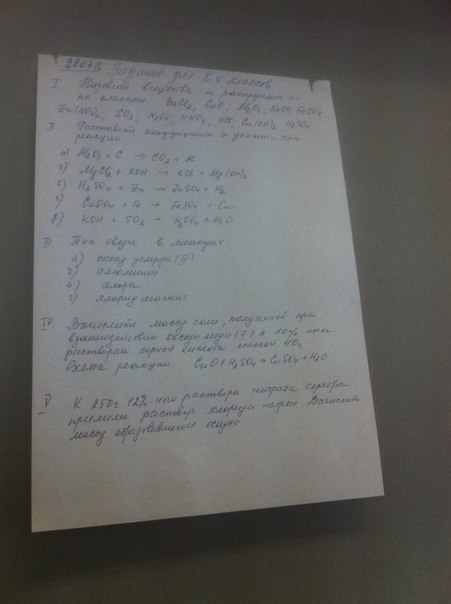 Задания для 8 х классов
I Назовите вещества и распределите их
по классам: BaCl2, CuO, Al2O3, NaOH, FeSO4
Zn(NO3)2, SO3, N2O5, HNO3, HCl, Cu(OH)2, H2SO4
II Расставить коэффициенты и указать тип
реакций
а) Al2O3 + C → CO2 + Al
б) MgCl2 + KOH → KCl + Mg(OH)2
в) H2SO4 + Zn → ZnSO4 + H2
г) CuSO4 + Fe → FeSO4 + Cu
д) KOH + SO3 → K2SO4 + H2O
III Тип связи в молекулах
а) оксид углерода (IV)
б) алюминий
в) хлора
г) хлорид магния
IV Вычислите массу соли, полученной при
взаимодействии оксида меди (II) с 10%-ным
раствором серной кислоты массой 40г
Схема реакции CuO + H2SO4 → CuSO4 + H2O
V К 250г 12%-ного раствора нитрата серебра
прилили раствор хлорида натрия Вычислите
массу образовавшегося осадка